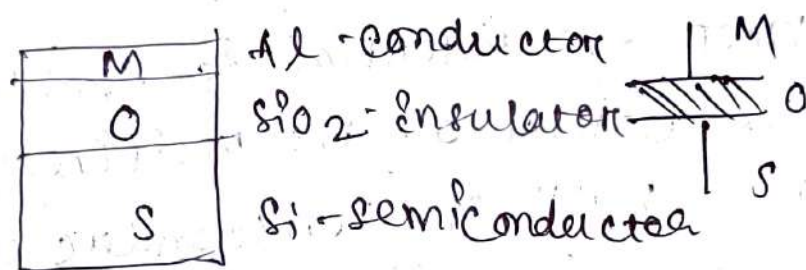 M Al-conductor M
O SiO2-insulator O
S Si-semiconductor S